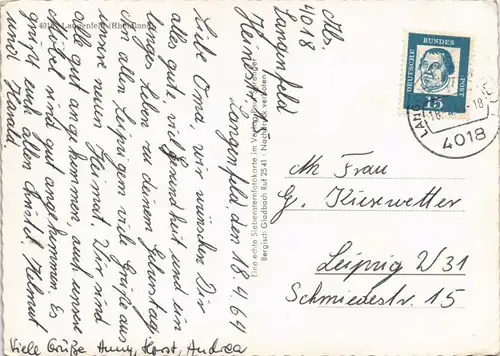 4018 Langenfeld (Rheinland)
Abs.
4018
Langenfeld
Langenfeld den 18.4.64
Liebe Oma, wir wünschen Dir
alles gut, viel Gesundheit und ein
langes Leben zu deinem Geburtstag
allen Leipzigern viele Grüße aus
unsere neuen Heimat Wir sind
alle gut angekommen, auch unsere
Möbel sind gut angekommen. Es
grüßt euch allen Christel, Helmut
und Harald
Viele Grüße Anny, Horst, Andrea
Eine echte Siebensternfotokarte im Verlag
Bergisch Gladbach Ruf 2541 · Nachdruck verboten
DEUTSCHE BUNDES POST
15
4018
An Frau
G. Kiesewetter
Leipzig W 31
Schmiedestr. 15